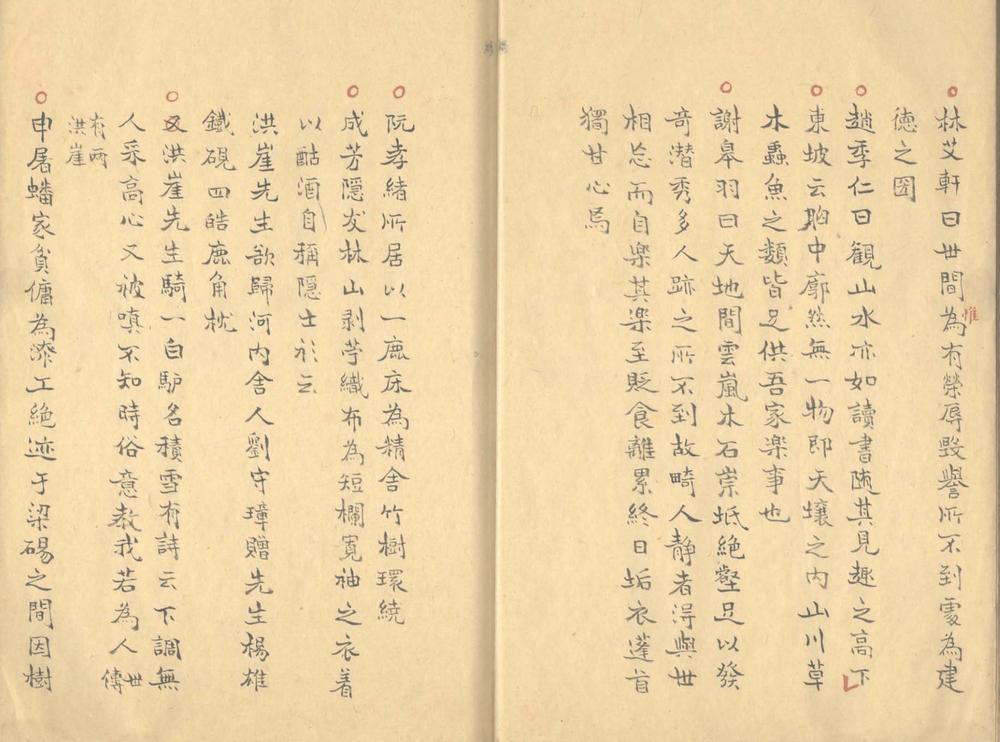 林艾軒曰世間為有榮辱毀譽所不到處為建
惟
德之囿
趙季仁曰觀山水亦如讀書随其見趣之高下
東坡云胸中廓然無一物即天壤之内山川草
木蟲魚之類皆足供吾家楽事也
謝皋羽曰天地間雲嵐木石崇坻絶壑足以發
奇潛秀多人跡之所不到故畸人静者淂與世
相忘而自楽其楽至貶食離累終日垢衣蓬首
獨甘心焉
阮孝緒所居以一鹿床為精舎竹樹環繞
成芳隱友林山剥苧織布為短襴寛袖之衣着
以酤酒自稱隱士衫云
洪崖先生欲歸河内舎人劉守璋贈先生楊雄
鐵硯四皓鹿角枕
又洪崖先生騎一白馿名積雪有詩云下調無
人采高心又被嗔不知時俗意教我若為人世傳
有兩洪崖
申屠蟠家貧傭為漆工絶迹于梁碭之間因樹